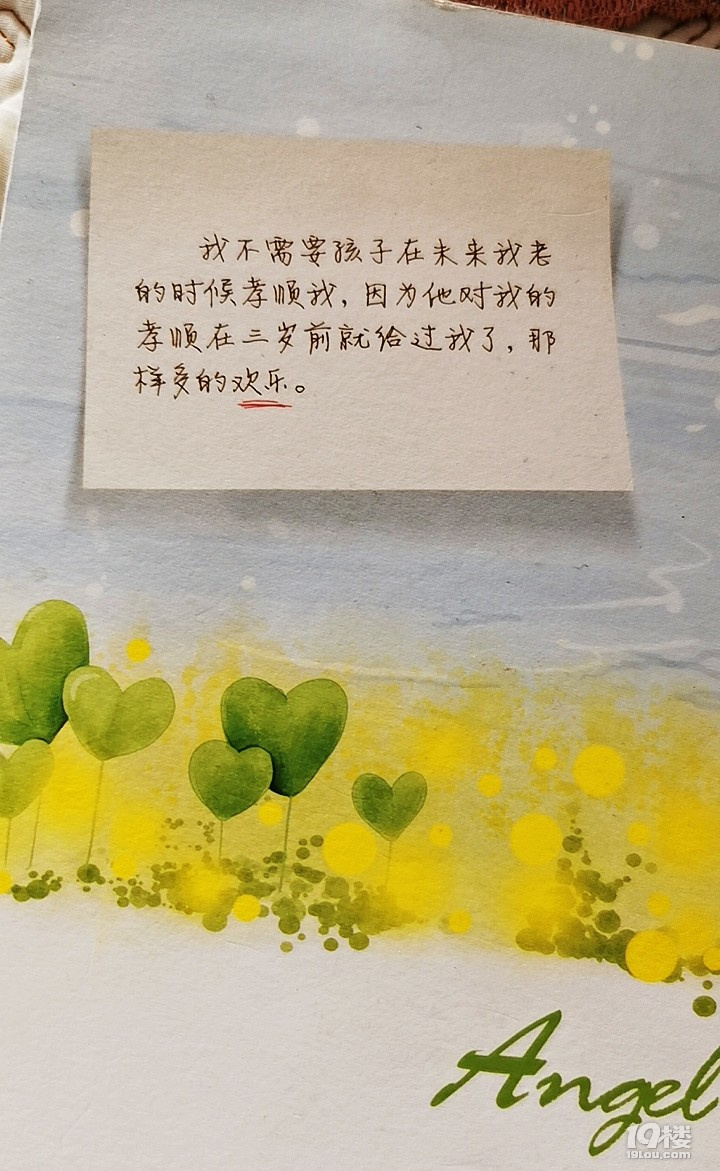 我不需要孩子在未来我老
的时候孝顺我，因为他对我的
孝顺在三岁前就给过我了，那
样多的欢乐。
Angel
19楼
19lou.com